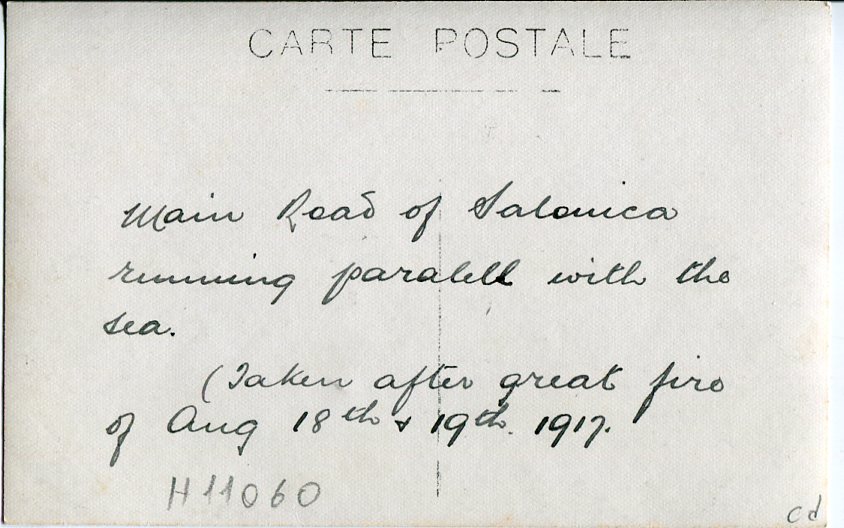 CARTE POSTALE
Main Road of Salonica
running paralell with the
sea.
(Taken after great fire
of Aug 18th & 19th. 1917.
H11060
cd